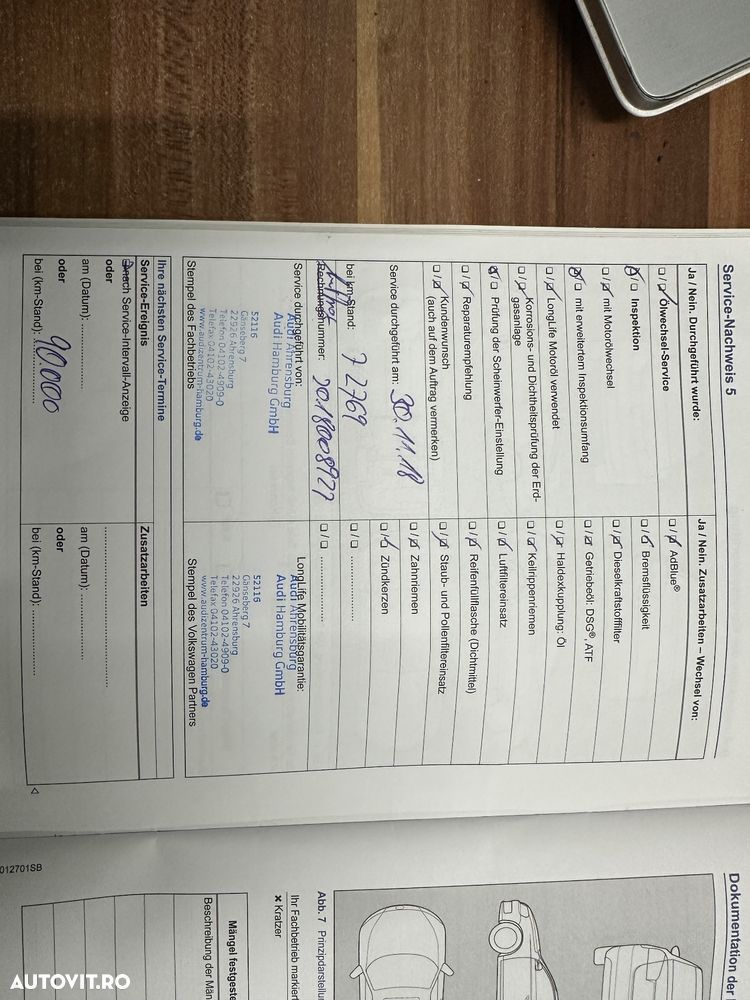 Service-Nachweis 5
Ja / Nein. Durchgeführt wurde:
Ölwechsel-Service
Inspektion
mit Motorölwechsel
mit erweitertem Inspektionsumfang
LongLife Motoröl verwendet
Korrosions- und Dichtheitsprüfung der Erd-
gasanlage
Prüfung der Scheinwerfer-Einstellung
Reparaturempfehlung
Kundenwunsch
(auch auf dem Auftrag vermerken)
Service durchgeführt am: 30.11.18
bei km-Stand: 72769
Rechnungsnummer: 2018008927
Service durchgeführt von:
Audi Ahrensburg
Audi Hamburg GmbH
52116
Gänseberg 7
22926 Ahrensburg
Telefon 04102-4909-0
Telefax 04102-43020
www.audizentrum-hamburg.de
Stempel des Fachbetriebs
Ja / Nein. Zusatzarbeiten – Wechsel von:
AdBlue®
Bremsflüssigkeit
Dieselkraftstofffilter
Getriebeöl: DSG®, ATF
Haldexkupplung: Öl
Keilrippenriemen
Luftfiltereinsatz
Reifenfüllflasche (Dichtmittel)
Staub- und Pollenfiltereinsatz
Zahnriemen
Zündkerzen
LongLife Mobilitätsgarantie:
Audi Ahrensburg
Audi Hamburg GmbH
52116
Gänseberg 7
22926 Ahrensburg
Telefon 04102-4909-0
Telefax 04102-43020
www.audizentrum-hamburg.de
Stempel des Volkswagen Partners
Ihre nächsten Service-Termine
Service-Ereignis
nach Service-Intervall-Anzeige
oder
am (Datum):
oder
bei (km-Stand): 90.000
Zusatzarbeiten
am (Datum):
oder
bei (km-Stand):
012701SB
Dokumentation der
Abb. 7 Prinzipdarstellun
Ihr Fachbetrieb markier
✖ Kratzer
Mängel festgeste
Beschreibung der Män
AUTOVIT.RO